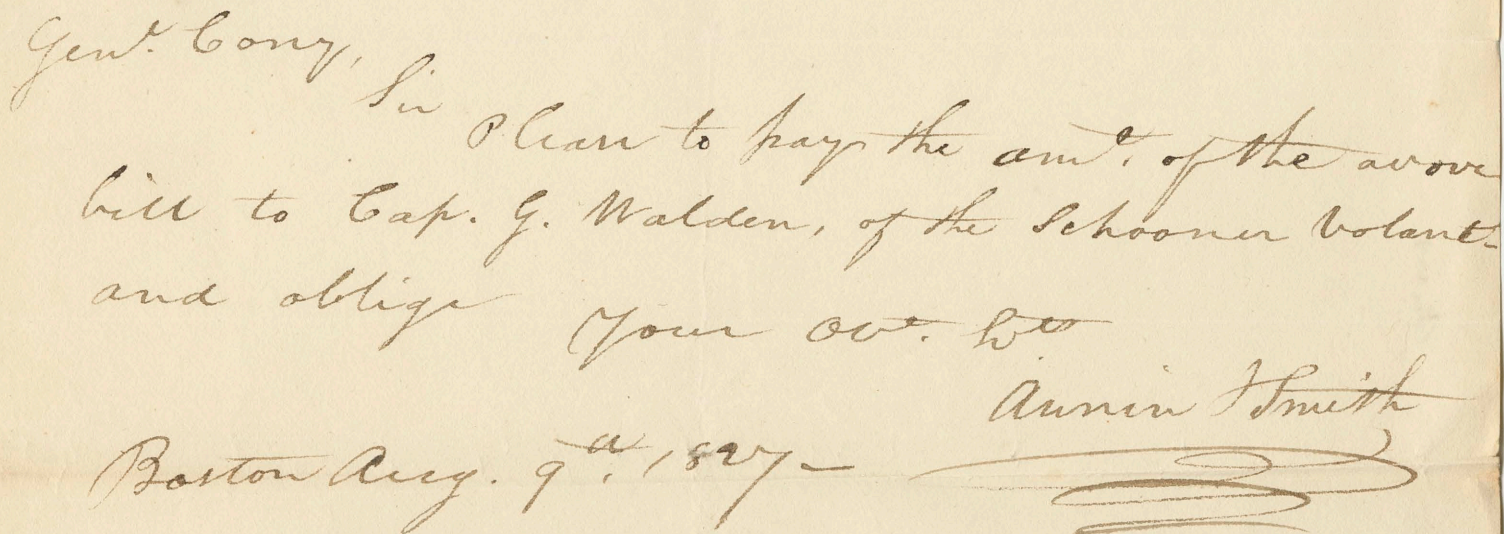 Genl. Cony,
Sir
Please to pay the amt. of the above
bill to Cap. G. Walden, of the Schooner Volant-
and oblige
Your Obt. Svt
Annin & Smith
Boston Aug. 9th. 1827-